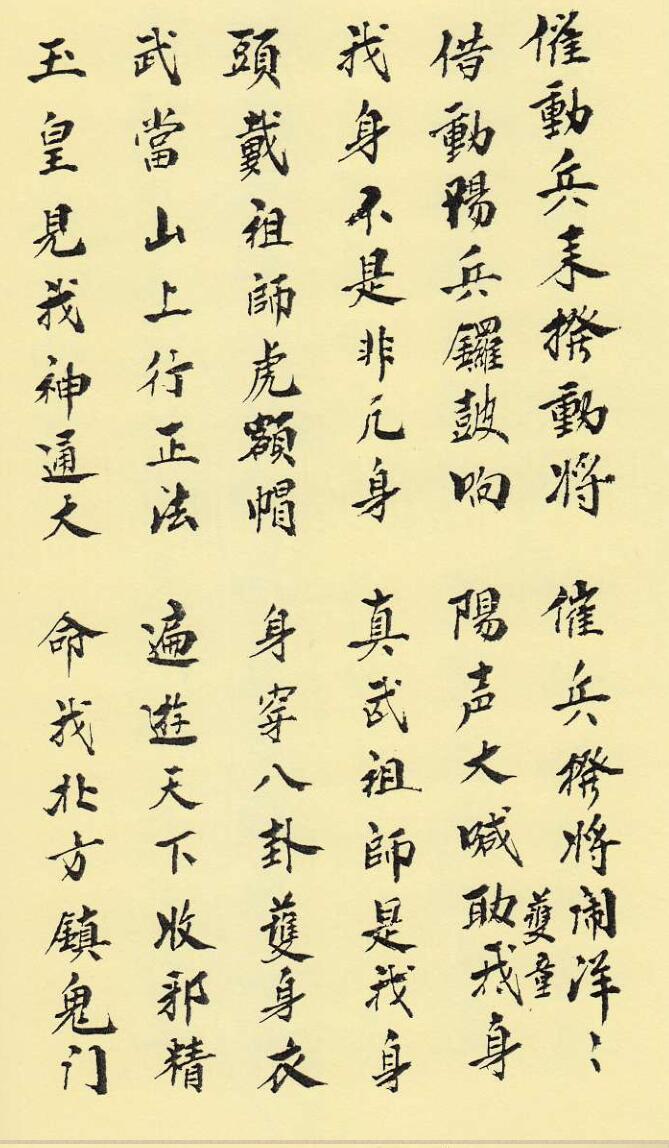 催動兵来撥動將 催兵撥將闹洋〻
借動陽兵鑼鼓响 陽声大喊助我身
護童
我身不是非凡身 真武祖師是我身
頭戴祖師虎額帽 身穿八卦護身衣
武當山上行正法 遍遊天下收邪精
玉皇見我神通大 命我北方鎮鬼门